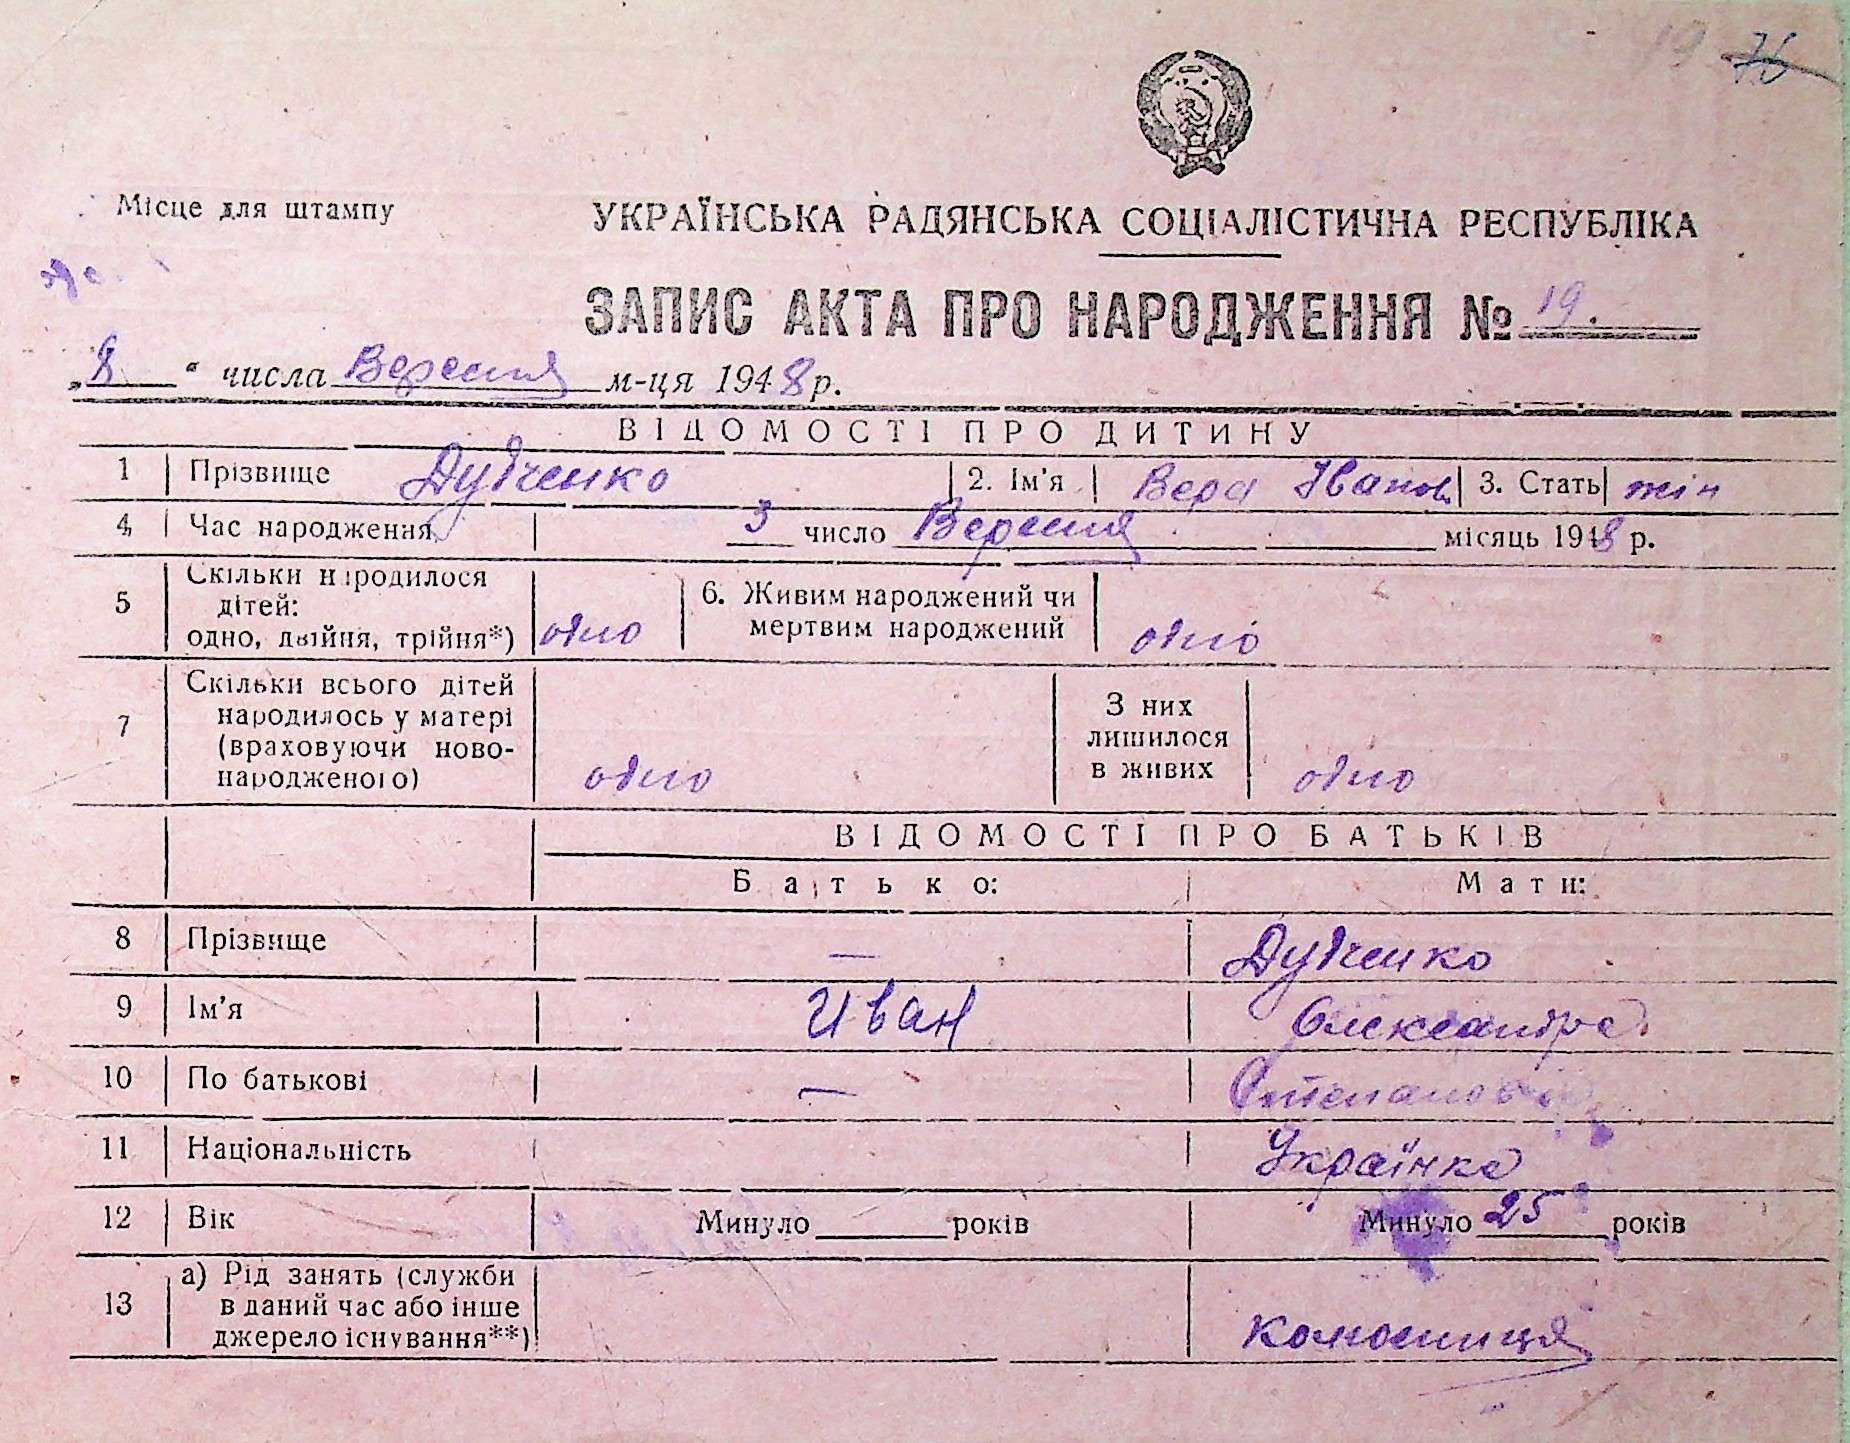 19 76
Місце для штампу
УКРАЇНСЬКА РАДЯНСЬКА СОЦІАЛІСТИЧНА РЕСПУБЛІКА
ЗАПИС АКТА ПРО НАРОДЖЕННЯ № 19.
„8“ числа Вересня м-ця 1948 р.
ВІДОМОСТІ ПРО ДИТИНУ
1 Прізвище Дудченко 2. Ім'я Вера Іванов 3. Стать жін
4 Час народження 3 число Вересня місяць 1948 р.
5 Скільки народилося
дітей:
одно, двійня, трійня*) одно
6. Живим народжений чи
мертвим народжений одно
7 Скільки всього дітей
народилось у матері
(враховуючи ново-
народженого) одно
З них
лишилося
в живих одно
ВІДОМОСТІ ПРО БАТЬКІВ
Батько: Мати:
8 Прізвище — Дудченко
9 Ім'я Иван Олександра
10 По батькові — Степановна
11 Національність Українка
12 Вік Минуло років Минуло 25 років
13 а) Рід занять (служби
в даний час або інше
джерело існування**) колгосниця